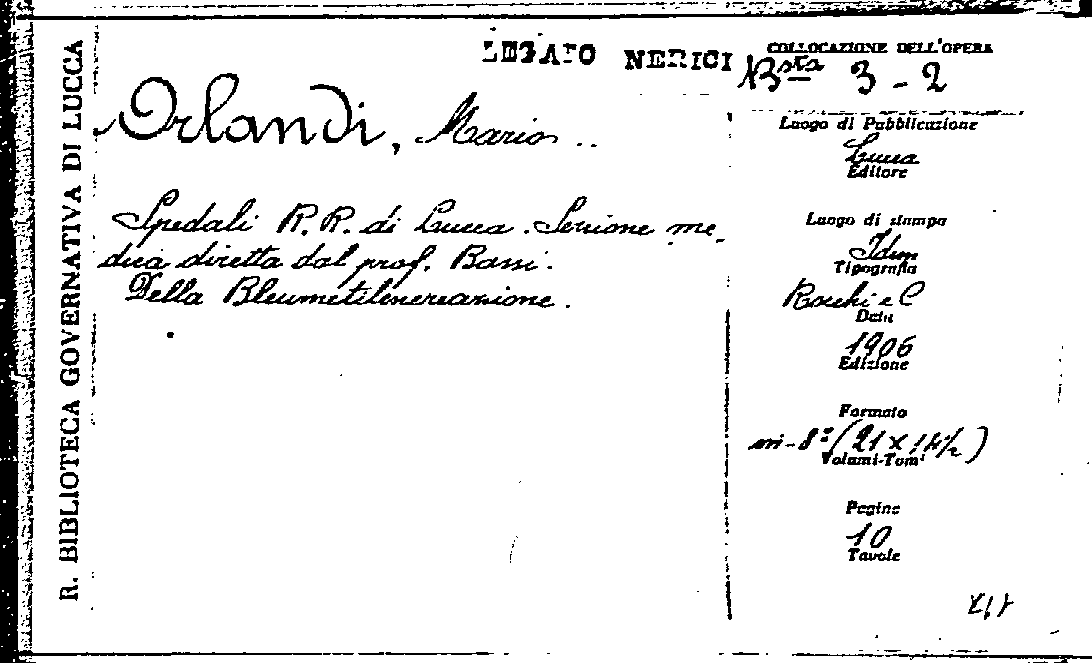 R. BIBLIOTECA GOVERNATIVA DI LUCCA
LEGATO NERICI
COLLOCAZIONE DELL'OPERA
Bsta 3-2
Orlandi, Mario
Spedali R.R. di Lucca. Sezione me-
dica diretta dal prof. Bassi.
Della Bleumetilenereazione.
Luogo di Pubblicazione
Lucca
Editore
Luogo di stampa
Idem
Tipografia
Rocchi e C
Data
1906
Edizione
Formato
in-8° (21 x 14½)
Volumi-Tomi
Pagine
10
Tavole